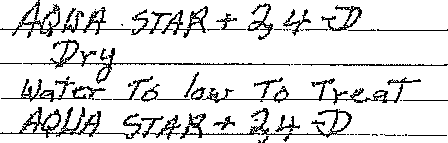 AQUA STAR + 2,4-D
Dry
Water To low To Treat
AQUA STAR + 2,4-D